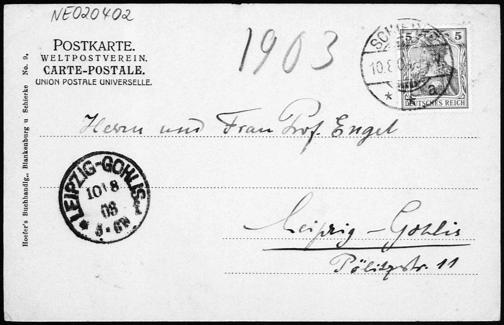 NE020402
POSTKARTE.
WELTPOSTVEREIN.
CARTE-POSTALE.
UNION POSTALE UNIVERSELLE.
1903
5 5
DEUTSCHES REICH
Herrn und Frau Prof. Engel
LEIPZIG-GOHLIS
10 8
03
Leipzig-Gohlis
Pölitzstr 11
Hoefer's Buchhandlg., Blankenburg u Schierke No. 9.